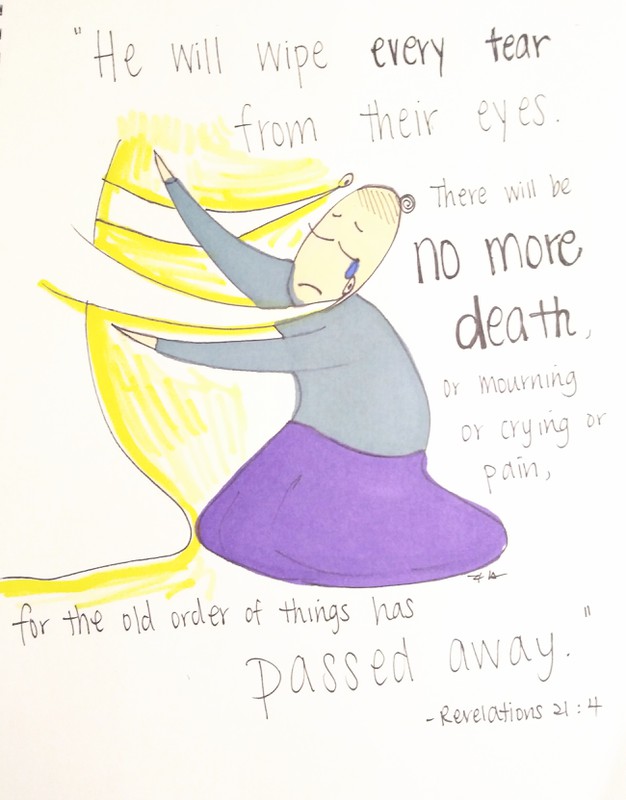 "He will wipe every tear
from their eyes.
There will be
no more
death,
or mourning
or crying or
pain,
for the old order of things has
passed away."
-Revelations 21:4